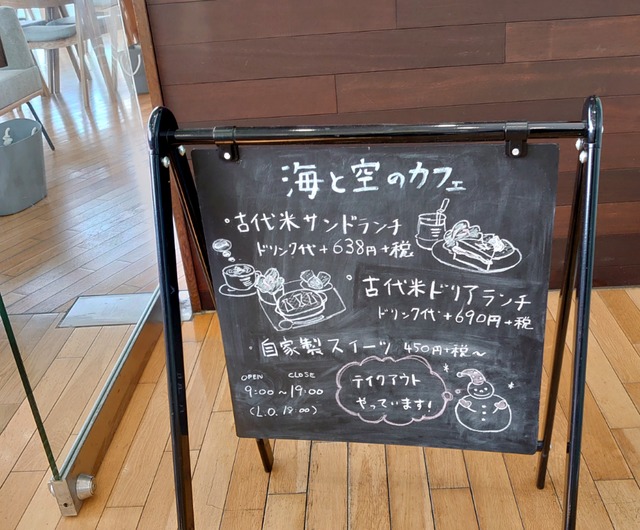 海と空のカフェ
・古代米サンドランチ
ドリンク代+638円+税
・古代米ドリアランチ
ドリンク代+690円+税
・自家製スイーツ 450円+税〜
OPEN CLOSE
9:00〜19:00
(L.O. 18:00)
テイクアウト
やっています!